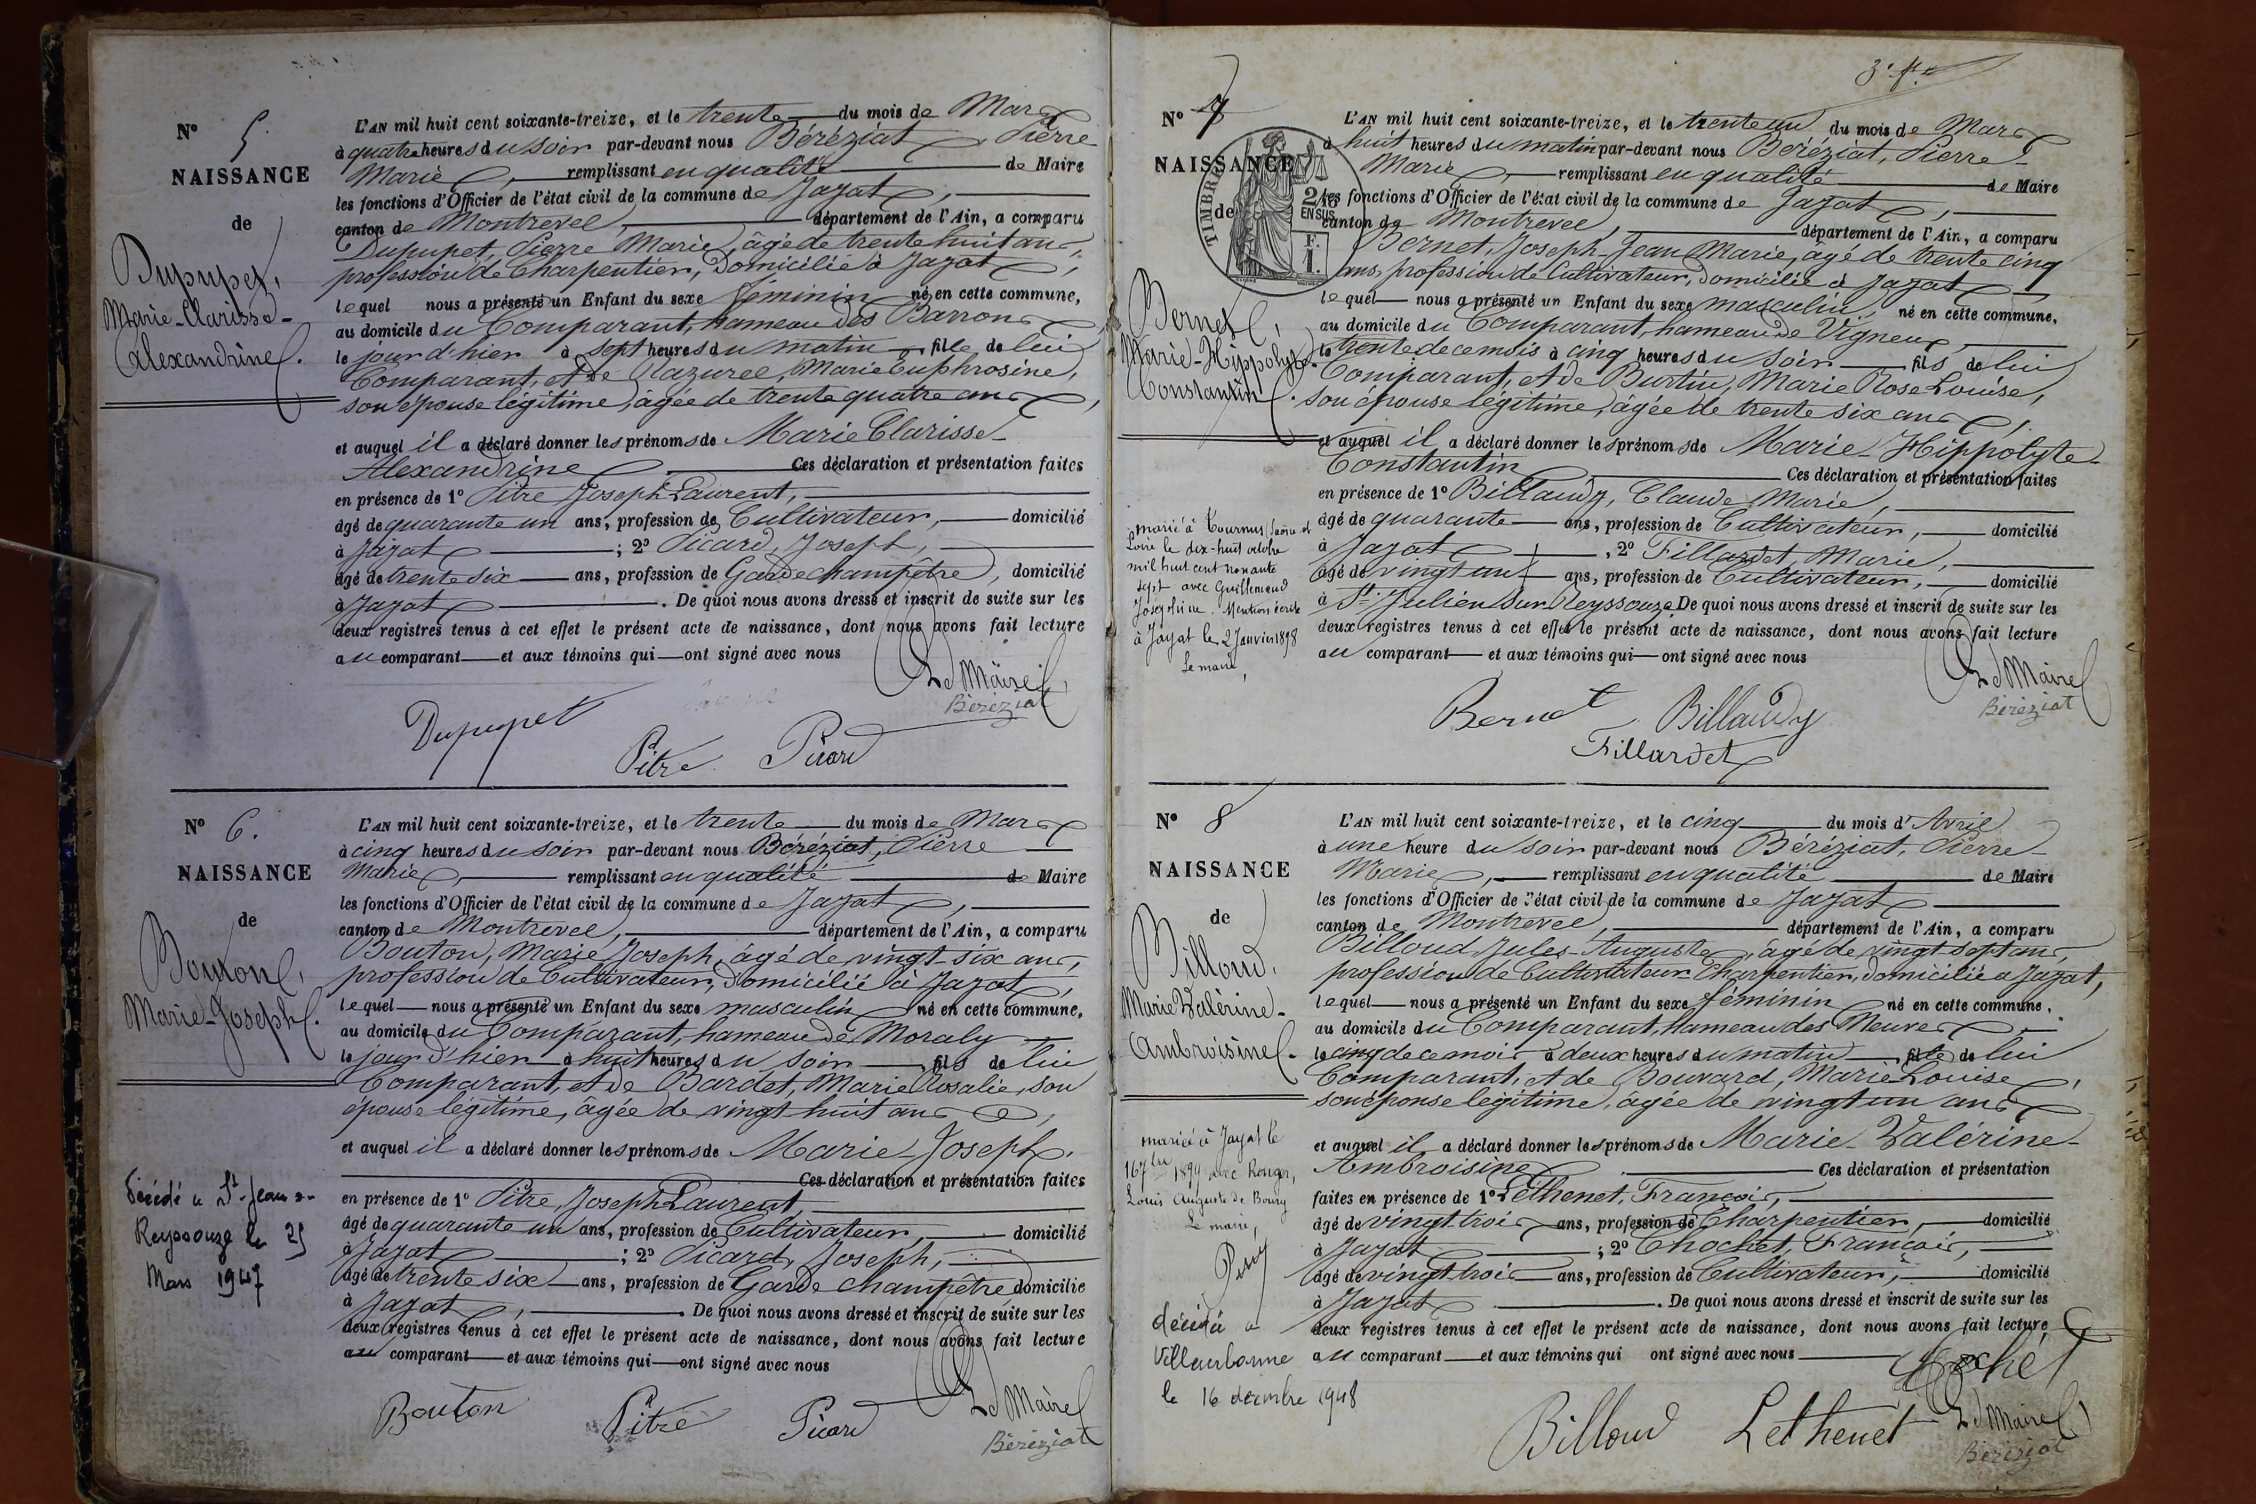 N° 5.
NAISSANCE
de
Dupupet,
Marie-Clarisse-
Alexandrine.
L'AN mil huit cent soixante-treize, et le trente du mois de Mars
à quatre heures du soir par-devant nous Béréziat, Pierre
Marie, remplissant en qualité de Maire
les fonctions d'Officier de l'état civil de la commune de Jayat,
canton de Montrevel, département de l'Ain, a comparu
Dupupet, Pierre Marie, âgé de trente huit ans,
profession de Charpentier, domicilié à Jayat,
lequel nous a présenté un Enfant du sexe féminin né en cette commune,
au domicile du Comparant, hameau des Barrons
le jour d'hier à sept heures du matin fille de lui
Comparant, et de Mazuree, Marie Euphrosine,
son épouse légitime, âgée de trente quatre ans,
et auquel il a déclaré donner les prénoms de Marie Clarisse-
Alexandrine Ces déclaration et présentation faites
en présence de 1° Pitre Joseph Laurent,
âgé de quarante un ans, profession de Cultivateur, domicilié
à Jayat ; 2° Picard, Joseph,
âgé de trente six ans, profession de Garde champêtre, domicilié
à Jayat. De quoi nous avons dressé et inscrit de suite sur les
deux registres tenus à cet effet le présent acte de naissance, dont nous avons fait lecture
au comparant et aux témoins qui ont signé avec nous
Le Maire
Béréziat
Dupupet
Pitre Picard
N° 6.
NAISSANCE
de
Bouton,
Marie-Joseph.
Décédé à St-Jean s-
Reyssouze le 25
Mars 1947
L'AN mil huit cent soixante-treize, et le trente du mois de Mars
à cinq heures du soir par-devant nous Béréziat, Pierre
Marie, remplissant en qualité de Maire
les fonctions d'Officier de l'état civil de la commune de Jayat,
canton de Montrevel, département de l'Ain, a comparu
Bouton, Marie Joseph, âgé de vingt-six ans,
profession de Cultivateur, domicilié à Jayat,
lequel nous a présenté un Enfant du sexe masculin né en cette commune,
au domicile du Comparant, hameau de Moraly
le jour d'hier à huit heures du soir fils de lui
Comparant, et de Bardet, Marie Rosalie, son
épouse légitime, âgée de vingt huit ans,
et auquel il a déclaré donner les prénoms de Marie-Joseph.
Ces déclaration et présentation faites
en présence de 1° Pitre, Joseph Laurent,
âgé de quarante un ans, profession de Cultivateur, domicilié
à Jayat ; 2° Picard, Joseph,
âgé de trente six ans, profession de Garde champêtre domicilié
à Jayat,. De quoi nous avons dressé et inscrit de suite sur les
deux registres tenus à cet effet le présent acte de naissance, dont nous avons fait lecture
au comparant et aux témoins qui ont signé avec nous
Le Maire
Béréziat
Bouton Pitre Picard
3e
N° 7
NAISSANCE
de
TIMBRE
2/10
EN SUS
F.
1.
Bernet,
Marie-Hippolyte-
Constantin.
marié à Tournus Saône et
Loire le dix-huit octobre
mil huit cent nonante
sept avec Guillemaud
Joséphine. Mention écrite
à Jayat le 2 Janvier 1898
Le maire,
L'AN mil huit cent soixante-treize, et le trente un du mois de Mars
à huit heures du matin par-devant nous Béréziat, Pierre-
Marie, remplissant en qualité de Maire
les fonctions d'Officier de l'état civil de la commune de Jayat,
canton de Montrevel, département de l'Ain, a comparu
Bernet, Joseph-Jean Marie, âgé de trente cinq
ans, profession de Cultivateur, domicilié à Jayat
lequel nous a présenté un Enfant du sexe masculin, né en cette commune,
au domicile du Comparant, hameau de Vigneux,
le trente de ce mois à cinq heures du soir fils de lui
Comparant, et de Burtin, Marie Rose Louise,
son épouse légitime, âgée de trente six ans,
et auquel il a déclaré donner les prénoms de Marie-Hippolyte-
Constantin Ces déclaration et présentation faites
en présence de 1° Billaudy, Claude Marie,
âgé de quarante ans, profession de Cultivateur, domicilié
à Jayat, 2° Fillardet, Marie,
âgé de vingt un ans, profession de Cultivateur, domicilié
à St. Julien sur Reyssouze De quoi nous avons dressé et inscrit de suite sur les
deux registres tenus à cet effet le présent acte de naissance, dont nous avons fait lecture
au comparant et aux témoins qui ont signé avec nous
Le Maire
Béréziat
Bernet Billaudy
Fillardet
N° 8
NAISSANCE
de
Billoud,
Marie Valérine-
Ambroisine.
mariée à Jayat le
16 7bre 1897 avec Ronger,
Louis Auguste de Bourg
Le maire,
décédé à
Villeurbanne
le 16 décembre 1948
L'AN mil huit cent soixante-treize, et le cinq du mois d'Avril
à une heure du soir par-devant nous Béréziat, Pierre-
Marie, remplissant en qualité de Maire
les fonctions d'Officier de l'état civil de la commune de Jayat
canton de Montrevel, département de l'Ain, a comparu
Billoud Jules-Auguste, âgé de vingt sept ans,
profession de Cultivateur Charpentier, domicilié à Jayat,
lequel nous a présenté un Enfant du sexe féminin né en cette commune,
au domicile du Comparant, hameau des Meures
le cinq de ce mois à deux heures du matin fille de lui
Comparant, et de Bouvard, Marie Louise,
son épouse légitime, âgée de vingt un ans
et auquel il a déclaré donner les prénoms de Marie-Valérine-
Ambroisine Ces déclaration et présentation
faites en présence de 1° Lethenet, François,
âgé de vingt trois ans, profession de Charpentier, domicilié
à Jayat ; 2° Chochet, François,
âgé de vingt trois ans, profession de Cultivateur, domicilié
à Jayat. De quoi nous avons dressé et inscrit de suite sur les
deux registres tenus à cet effet le présent acte de naissance, dont nous avons fait lecture
au comparant et aux témoins qui ont signé avec nous
Le Maire
Béréziat
Billoud Lethenet